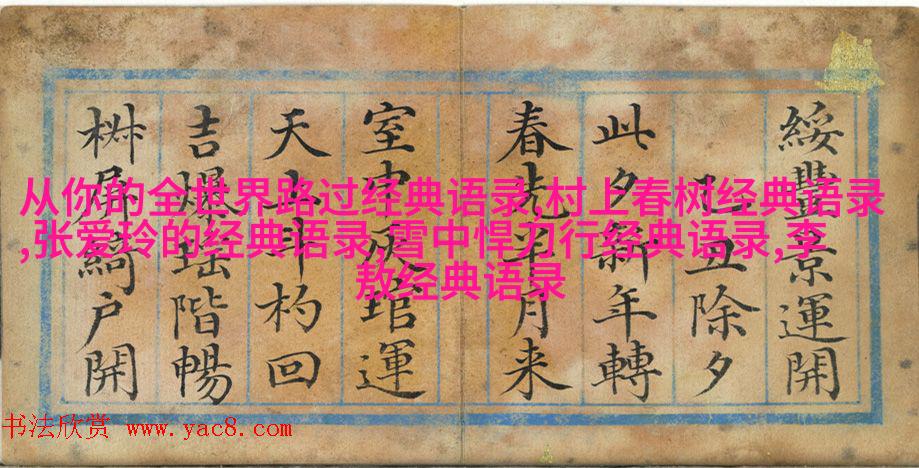 从你的全世界路过经典语录,村上春树经典语录
,张爱玲的经典语录,雪中悍刀行经典语录,李
敖经典语录
綏豐景運開
己丑除夕
此夕新年轉
春先半月来
室中灰琯運
天上斗杓回
吉爆瑶階暢
椒屏綺戶開
书法欣赏 www.yac8.com